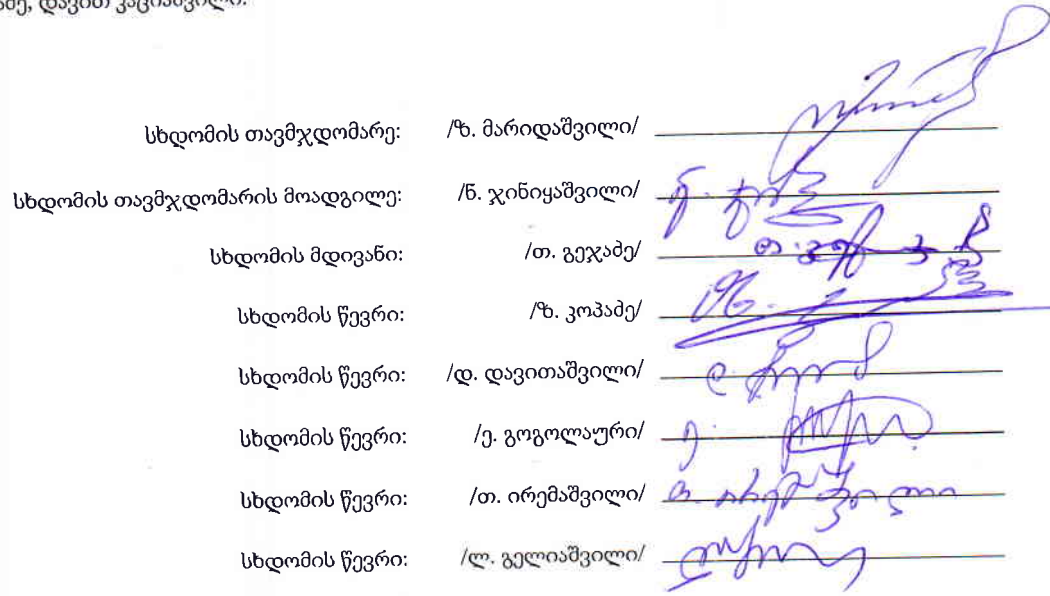 დავით კაციაშვილი.
სხდომის თავმჯდომარე: /ზ. მარიდაშვილი/
სხდომის თავმჯდომარის მოადგილე: /ნ. ჯინიყაშვილი/
სხდომის მდივანი: /თ. გეჯაძე/
სხდომის წევრი: /ზ. კოპაძე/
სხდომის წევრი: /დ. დავითაშვილი/
სხდომის წევრი: /ე. გოგოლაური/
სხდომის წევრი: /თ. ირემაშვილი/
სხდომის წევრი: /ლ. გელიაშვილი/